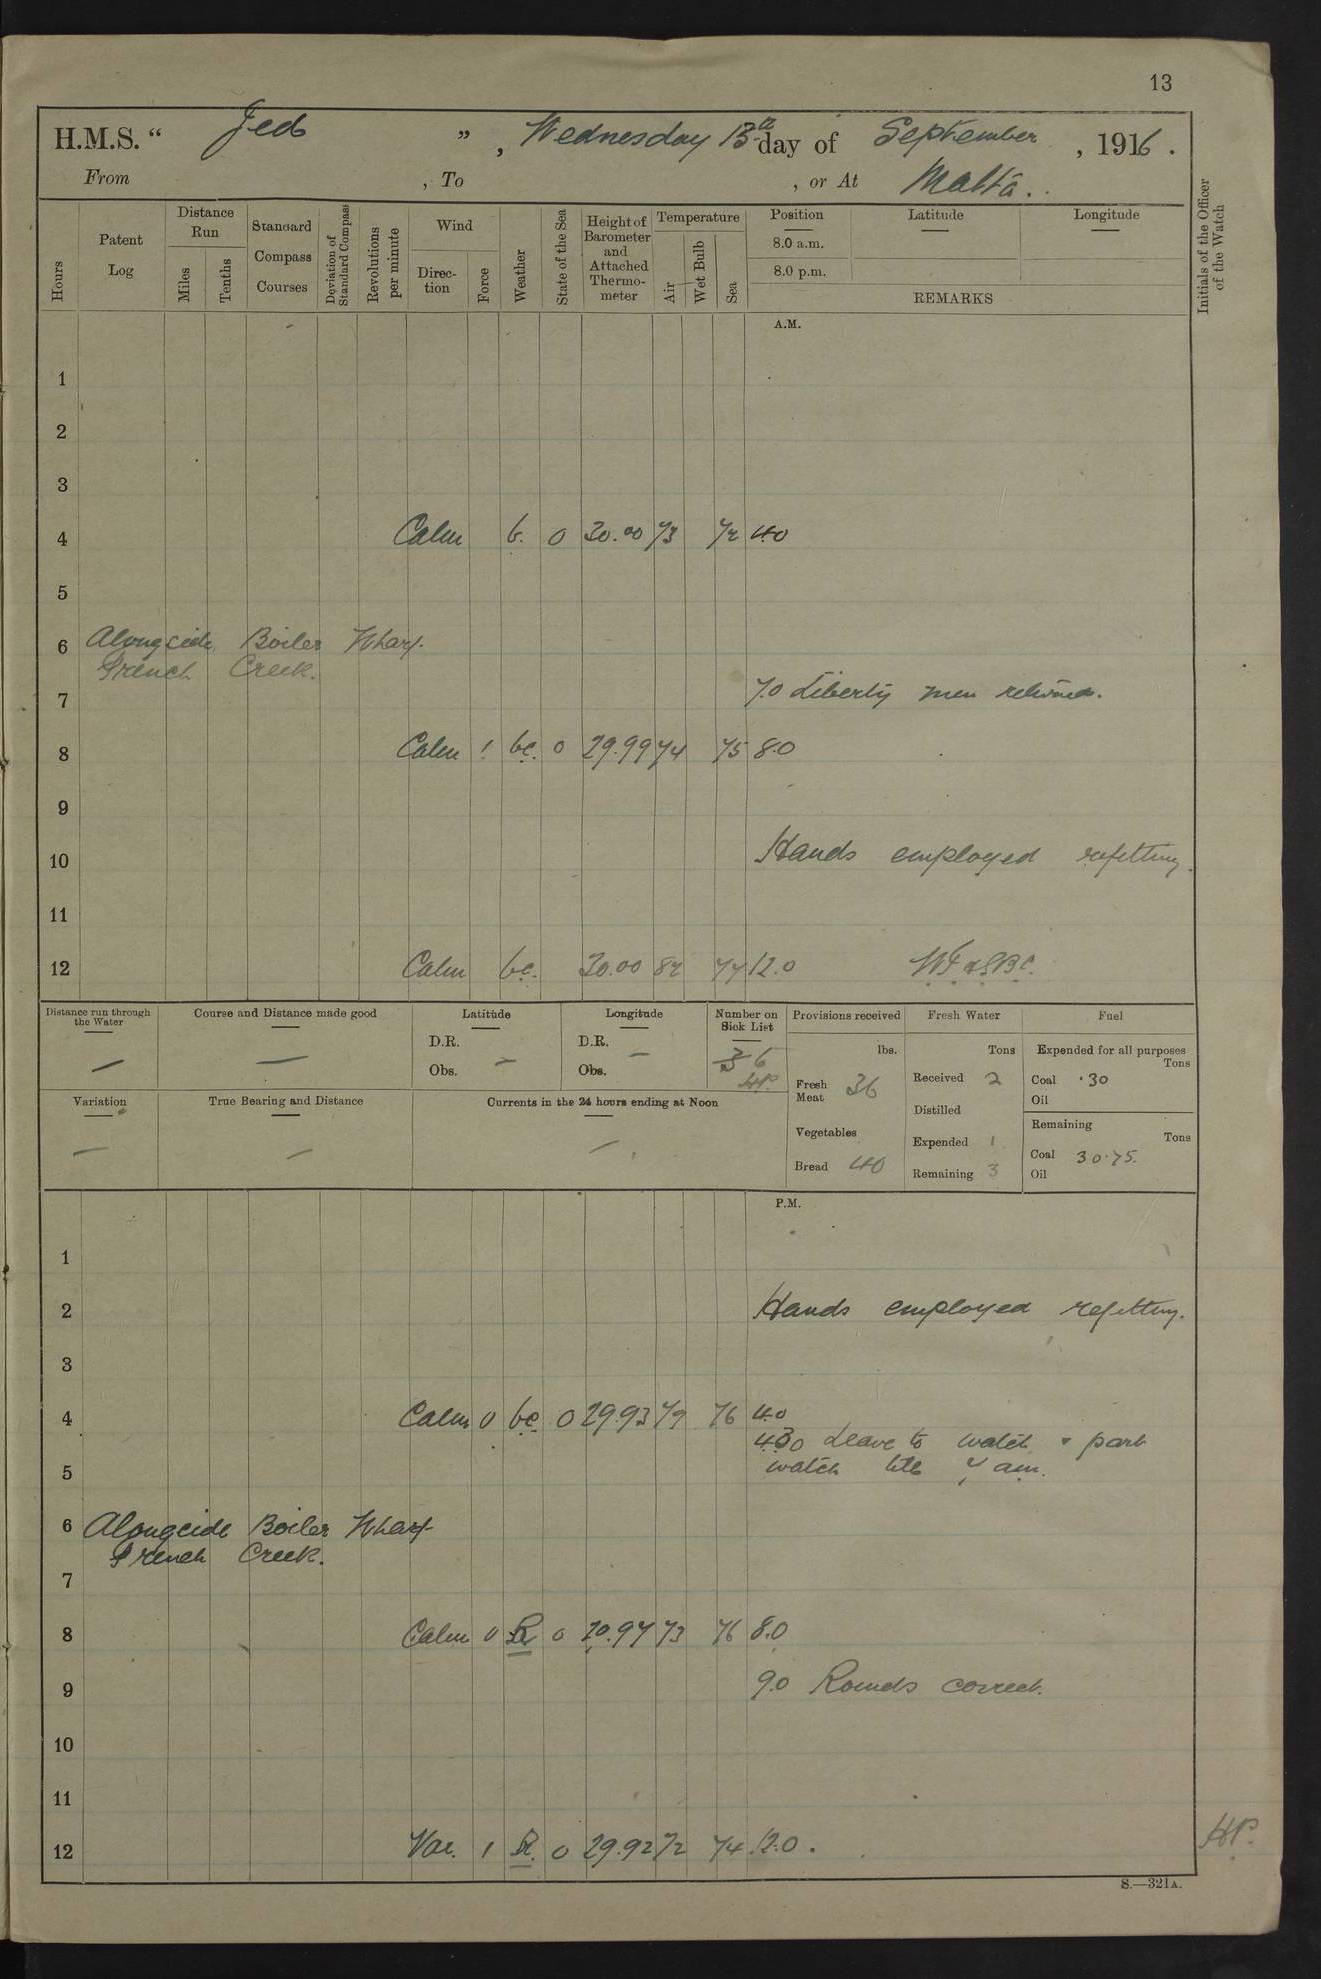 13
H.M.S. " Jed ", Wednesday 13th day of September, 1916.
From , To , or At Malta.
Hours
Patent Log
Distance Run
Miles
Tenths
Standard Compass Courses
Deviation of Standard Compass
Revolutions per minute
Wind
Direction
Force
Weather
State of the Sea
Height of Barometer and Attached Thermometer
Temperature
Air
Wet Bulb
Sea
Position Latitude Longitude
8.0 a.m.
8.0 p.m.
REMARKS
Initials of the Officer of the Watch
A.M.
1
2
3
4 Calm b. 0 30.00 73 72 4.0
5
6 Alongside Boiler Wharf
French Creek.
7 7.0 Liberty men returned.
8 Calm 1 bc. 0 29.99 74 75 8.0
9
10 Hands employed refitting.
11
12 Calm bc. 30.00 82 77 12.0
Distance run through the Water
—
Course and Distance made good
—
Latitude
D.R.
Obs. —
Longitude
D.R. —
Obs.
Number on Sick List
6
HP.
Provisions received
lbs.
Fresh Meat 36
Vegetables
Bread 40
Fresh Water
Tons
Received 2
Distilled
Expended 1
Remaining 3
Fuel
Expended for all purposes
Tons
Coal ·30
Oil
Remaining
Tons
Coal 30·75.
Oil
Variation
—
True Bearing and Distance
—
Currents in the 24 hours ending at Noon
—
P.M.
1
2 Hands employed refitting.
3
4 Calm 0 bc 0 29.93 79 76 4.0
4.30 Leave to watch & part
5 watch till 7 am.
6 Alongside Boiler Wharf
French Creek.
7
8 Calm 0 R 0 29.97 73 76 8.0
9 9.0 Rounds correct.
10
11
12 Var. 1 R. 0 29.92 72 74 12.0.
HP.
S.—321A.